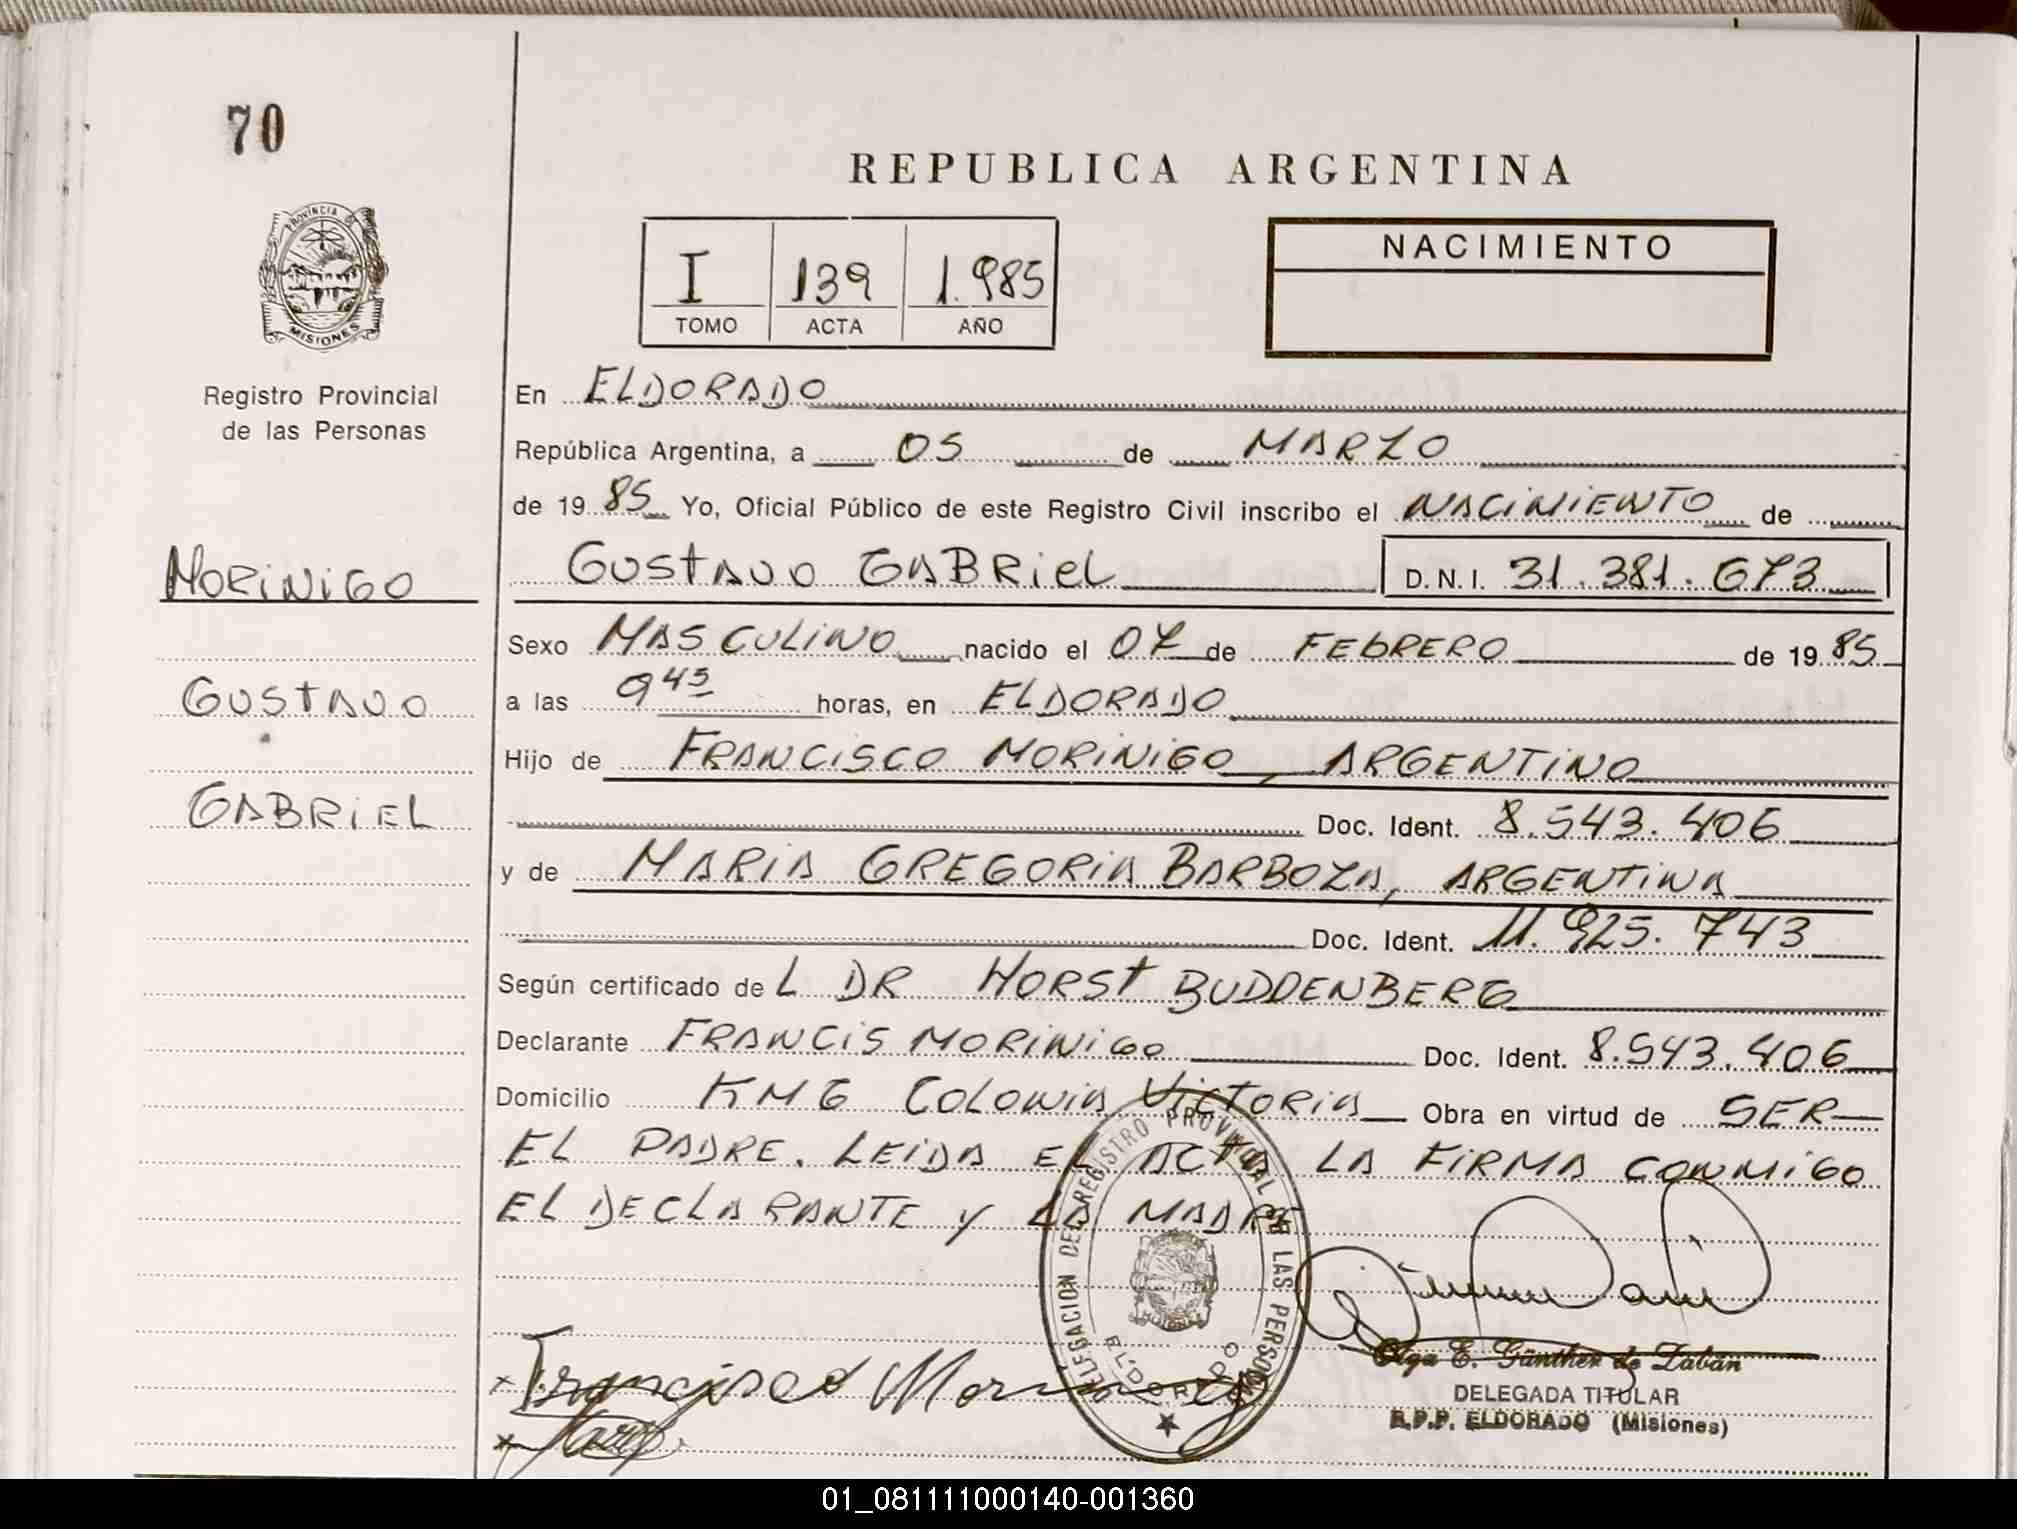 70
REPUBLICA ARGENTINA
PROVINCIA DE MISIONES
I 139 1.985
TOMO ACTA AÑO
NACIMIENTO
Registro Provincial
de las Personas
En ELDORADO
República Argentina, a 05 de MARZO
de 19 85 Yo, Oficial Público de este Registro Civil inscribo el NACIMIENTO de
MORINIGO
GUSTAVO GABRIEL D.N.I. 31.381.673
Sexo MASCULINO nacido el 07 de FEBRERO de 19 85
GUSTAVO
a las 9 45 horas, en ELDORADO
Hijo de FRANCISCO MORINIGO, ARGENTINO
GABRIEL
Doc. Ident. 8.543.406
y de MARIA GREGORIA BARBOZA, ARGENTINA
Doc. Ident. 11.925.743
Según certificado de L DR HORST BUDDENBERG
Declarante FRANCIS MORINIGO Doc. Ident. 8.543.406
Domicilio KM 6 COLONIA VICTORIA Obra en virtud de SER
EL PADRE. LEIDA EL ACTA LA FIRMA CONMIGO
EL DECLARANTE y LA MADRE
DELEGACION DEL REGISTRO PROVINCIAL DE LAS PERSONAS
ELDORADO
Francisco Morinigo
Olga E. Günther de Zabán
DELEGADA TITULAR
R.P.P. ELDORADO (Misiones)
01_081111000140-001360